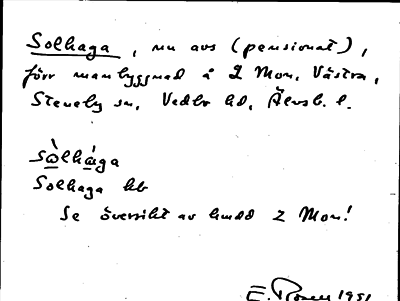 Solhaga, nu avs (pensionat),
förr manbyggnad å 2 Mon, Västra,
Steneby sn, Vedbo hd, Älvsb. l.
sòlhàga
Solhaga hb
Se översikt av hmdd 2 Mon!
E. Rosell 1951